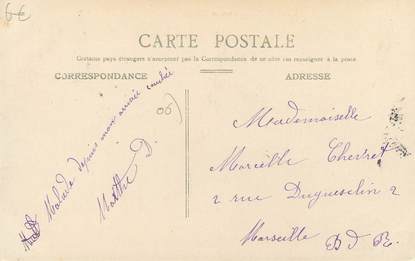 6-€
CARTE POSTALE
Certains pays étrangers n'acceptent pas la Correspondance de ce côté (se renseigner à la poste
CORRESPONDANCE
ADRESSE
Malade depuis mon arrivée
Marthe D.
06
Mademoiselle
Mareille
2 rue Duguesclin 2
Marseille B d R.